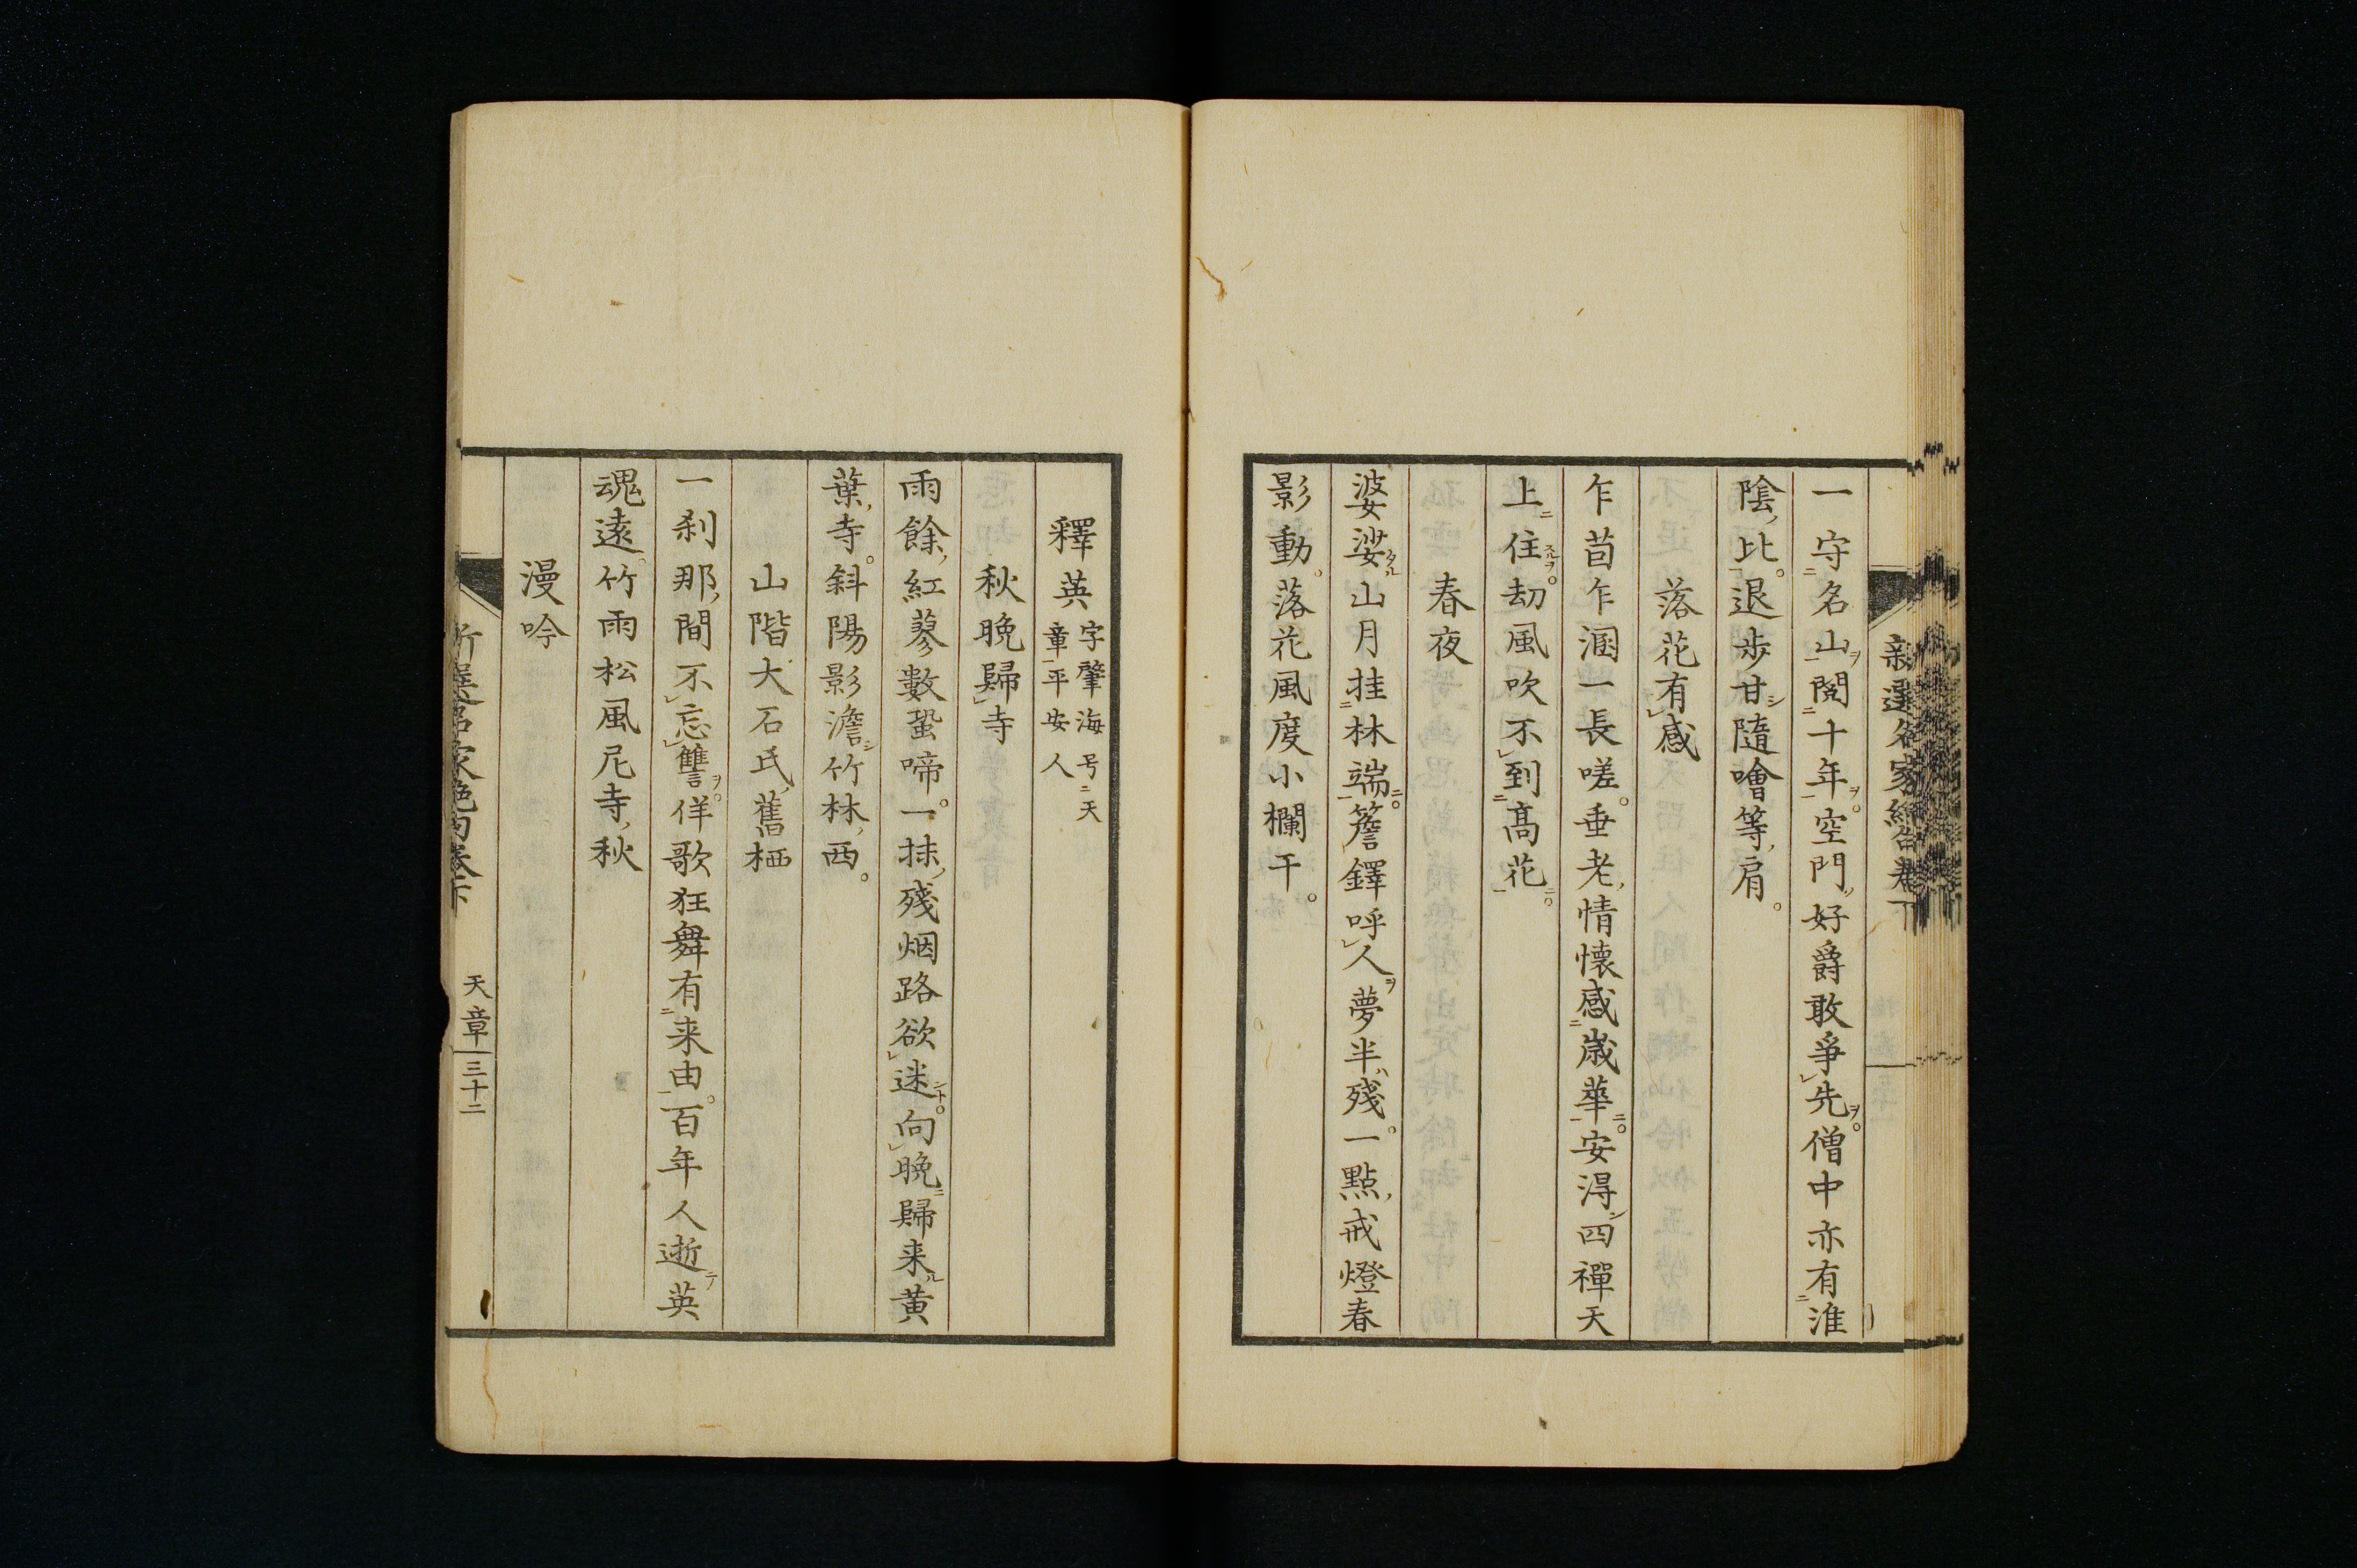 新選名家絶句巻下
一守名山閲十年空門好爵敢爭先僧中亦有淮
陰比退歩甘隨噲等肩
落花有感
乍茵乍溷一長嗟垂老情懐感歳華安得四禪天
上住刧風吹不到髙花
春夜
婆娑山月挂林端簷鐸呼人夢半殘一點戒燈春
影動落花風度小欄干
釋英 字肇海号天章平安人
秋晩歸寺
雨餘紅蓼數蛩啼一抹殘烟路欲迷向晩歸来黄
葉寺斜陽影澹竹林西
山階大石氏舊栖
一刹那間不忘讐佯歌狂舞有来由百年人逝英
魂遠竹雨松風尼寺秋
漫吟
新選名家絶句巻下 天章 三十二